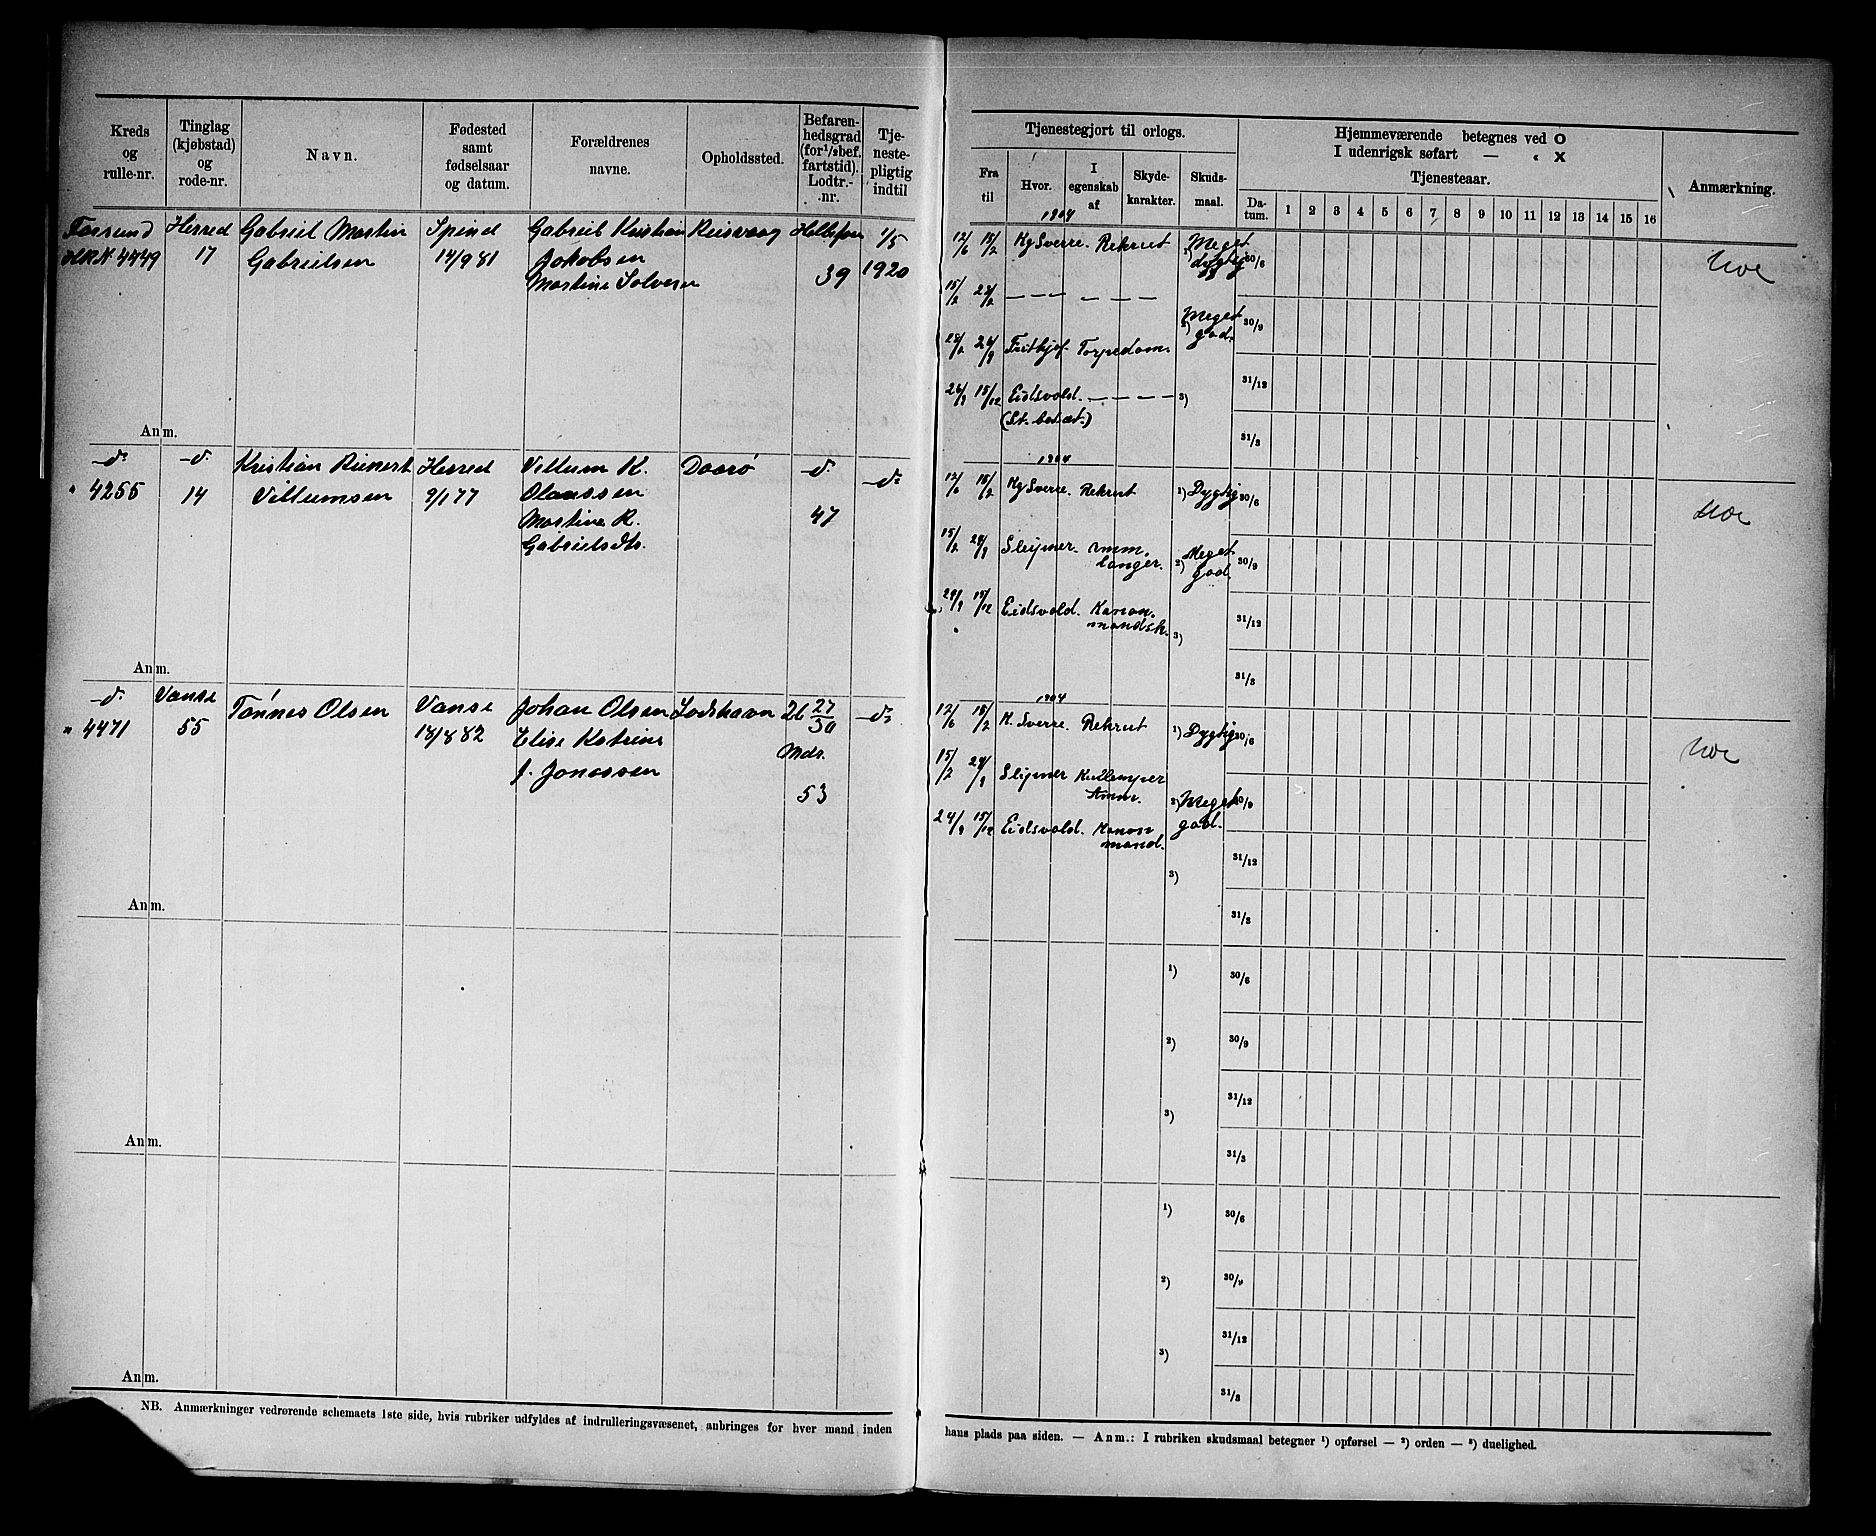 Kreds og rulle-nr.
Tinglag (kjøbstad) og rode-nr.
Navn.
Fødested samt fødselsaar og datum.
Forældrenes navne.
Opholdssted.
Befarenhedsgrad (for ½bef. fartstid). Lodtr.-nr.
Tjenestepligtig indtil
Tjenestegjort til orlogs.
Fra til
Hvor.
I egenskab af
Skydekarakter.
Skudsmaal.
Hjemmeværende betegnes ved O
I udenrigsk søfart — " X
Tjenesteaar.
Datum. 1 2 3 4 5 6 7 8 9 10 11 12 13 14 15 16
Anmærkning.
Herred Gabriel Martin Spind Gabriel Kristian 1/5
4449 17 Gabrielsen 14/9 81 Jakobsen 39 1920
Martine
Anm.
1904
12/6 15/2 Kg Sverre. Rekrut 1) Meget dygtig 30/6
15/2 — — — — — — —
Meget
2) god. 30/9
Frithjof Torpedom.
24/9 15/12 Eidsvold. — — — — 3) 31/12
31/3
-d- -d- Kristian Reinert Herred Villum K. -d- -d-
" 4255 14 Villumsen 9/1 77 Olaussen
Martine R. 47
Gabrielsdtr.
Anm.
1904
15/2 Kg Sverre. Rekrut 1) Dygtig 30/6
15/2 24/9 Sleipner. 2) Meget god. 30/9
24/9 15/12 Eidsvold. Kanonmandsk. 3) 31/12
31/3
-d- Vanse Tønnes Olsen Vanse Johan Olsen Lodshavn 26 27/30 -d-
" 4471 55 18/8 82 Elise Katrine Mdr.
J. Jonassen
53
Anm.
1904
12/6 15/2 K. Sverre. Rekrut 1) Dygtig 30/6
15/2 24/9 Sleipner Kullemper
2) Meget god. 30/9
24/9 15/12 Eidsvold. Kanonmand.
3) 31/12
31/3
1) 30/6
2) 30/9
3) 31/12
31/3
Anm.
1) 30/6
2) 30/9
3) 31/12
31/3
Anm.
NB. Anmærkninger vedrørende schemaets 1ste side, hvis rubriker udfyldes af indrulleringsvæsenet, anbringes for hver mand inden
hans plads paa siden. — Anm.: I rubriken skudsmaal betegner ¹) opførsel — ²) orden — ³) duelighed.